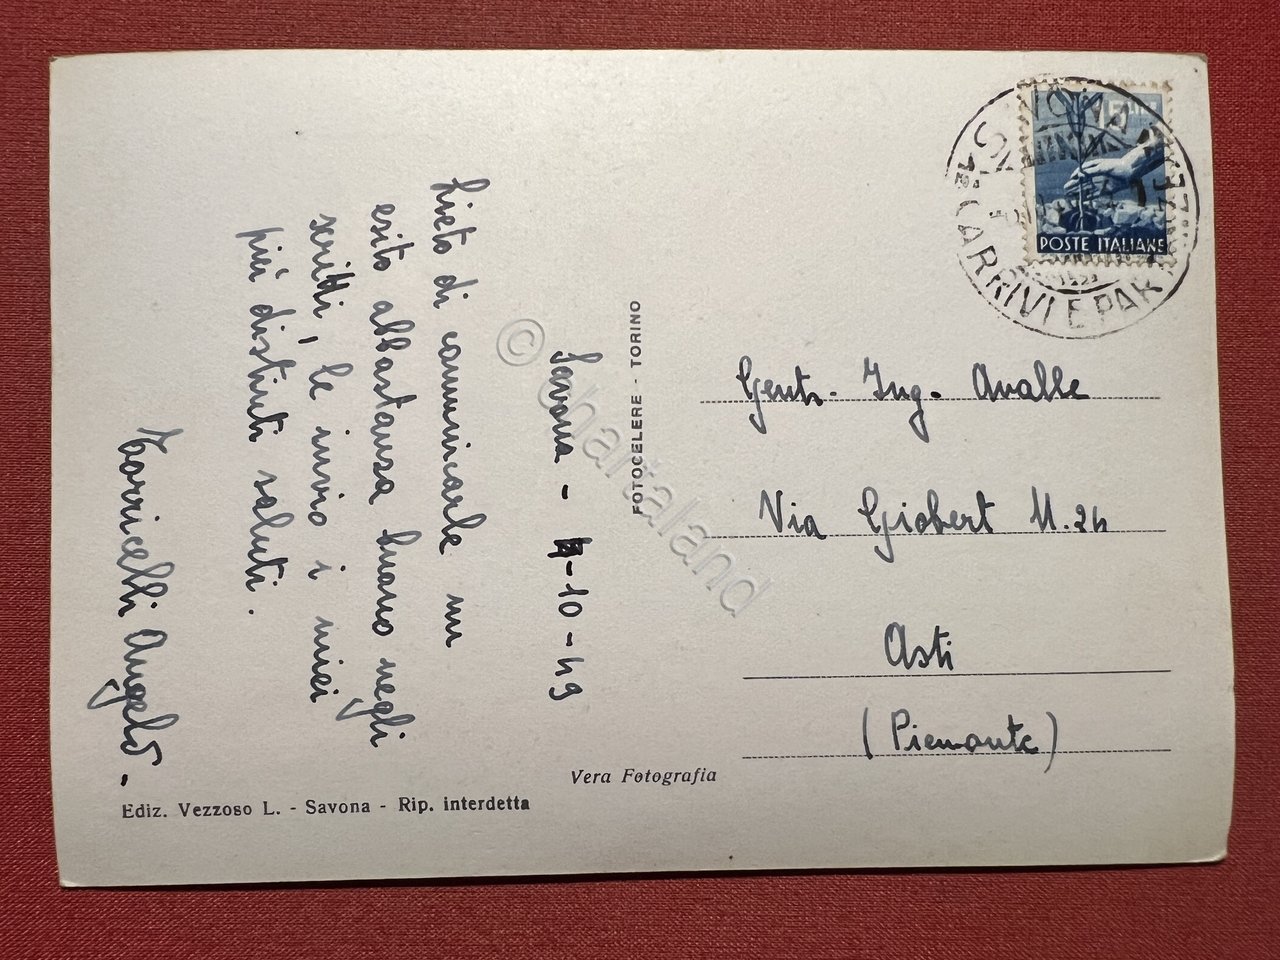 Savona - 4-10-49
Lieto di comunicarle un
esito abbastanza buono negli
scritti, le invio i miei
più distinti saluti.
Torricelli Angelo -
Ediz. Vezzoso L. - Savona - Rip. interdetta
Vera Fotografia
FOTOCELERE - TORINO
15 LIRE
POSTE ITALIANE
SAVONA
ARRIVI E PARTENZE
Gent. Ing. Avalle
Via Giobert N. 24
Asti
(Piemonte)
© chartaland